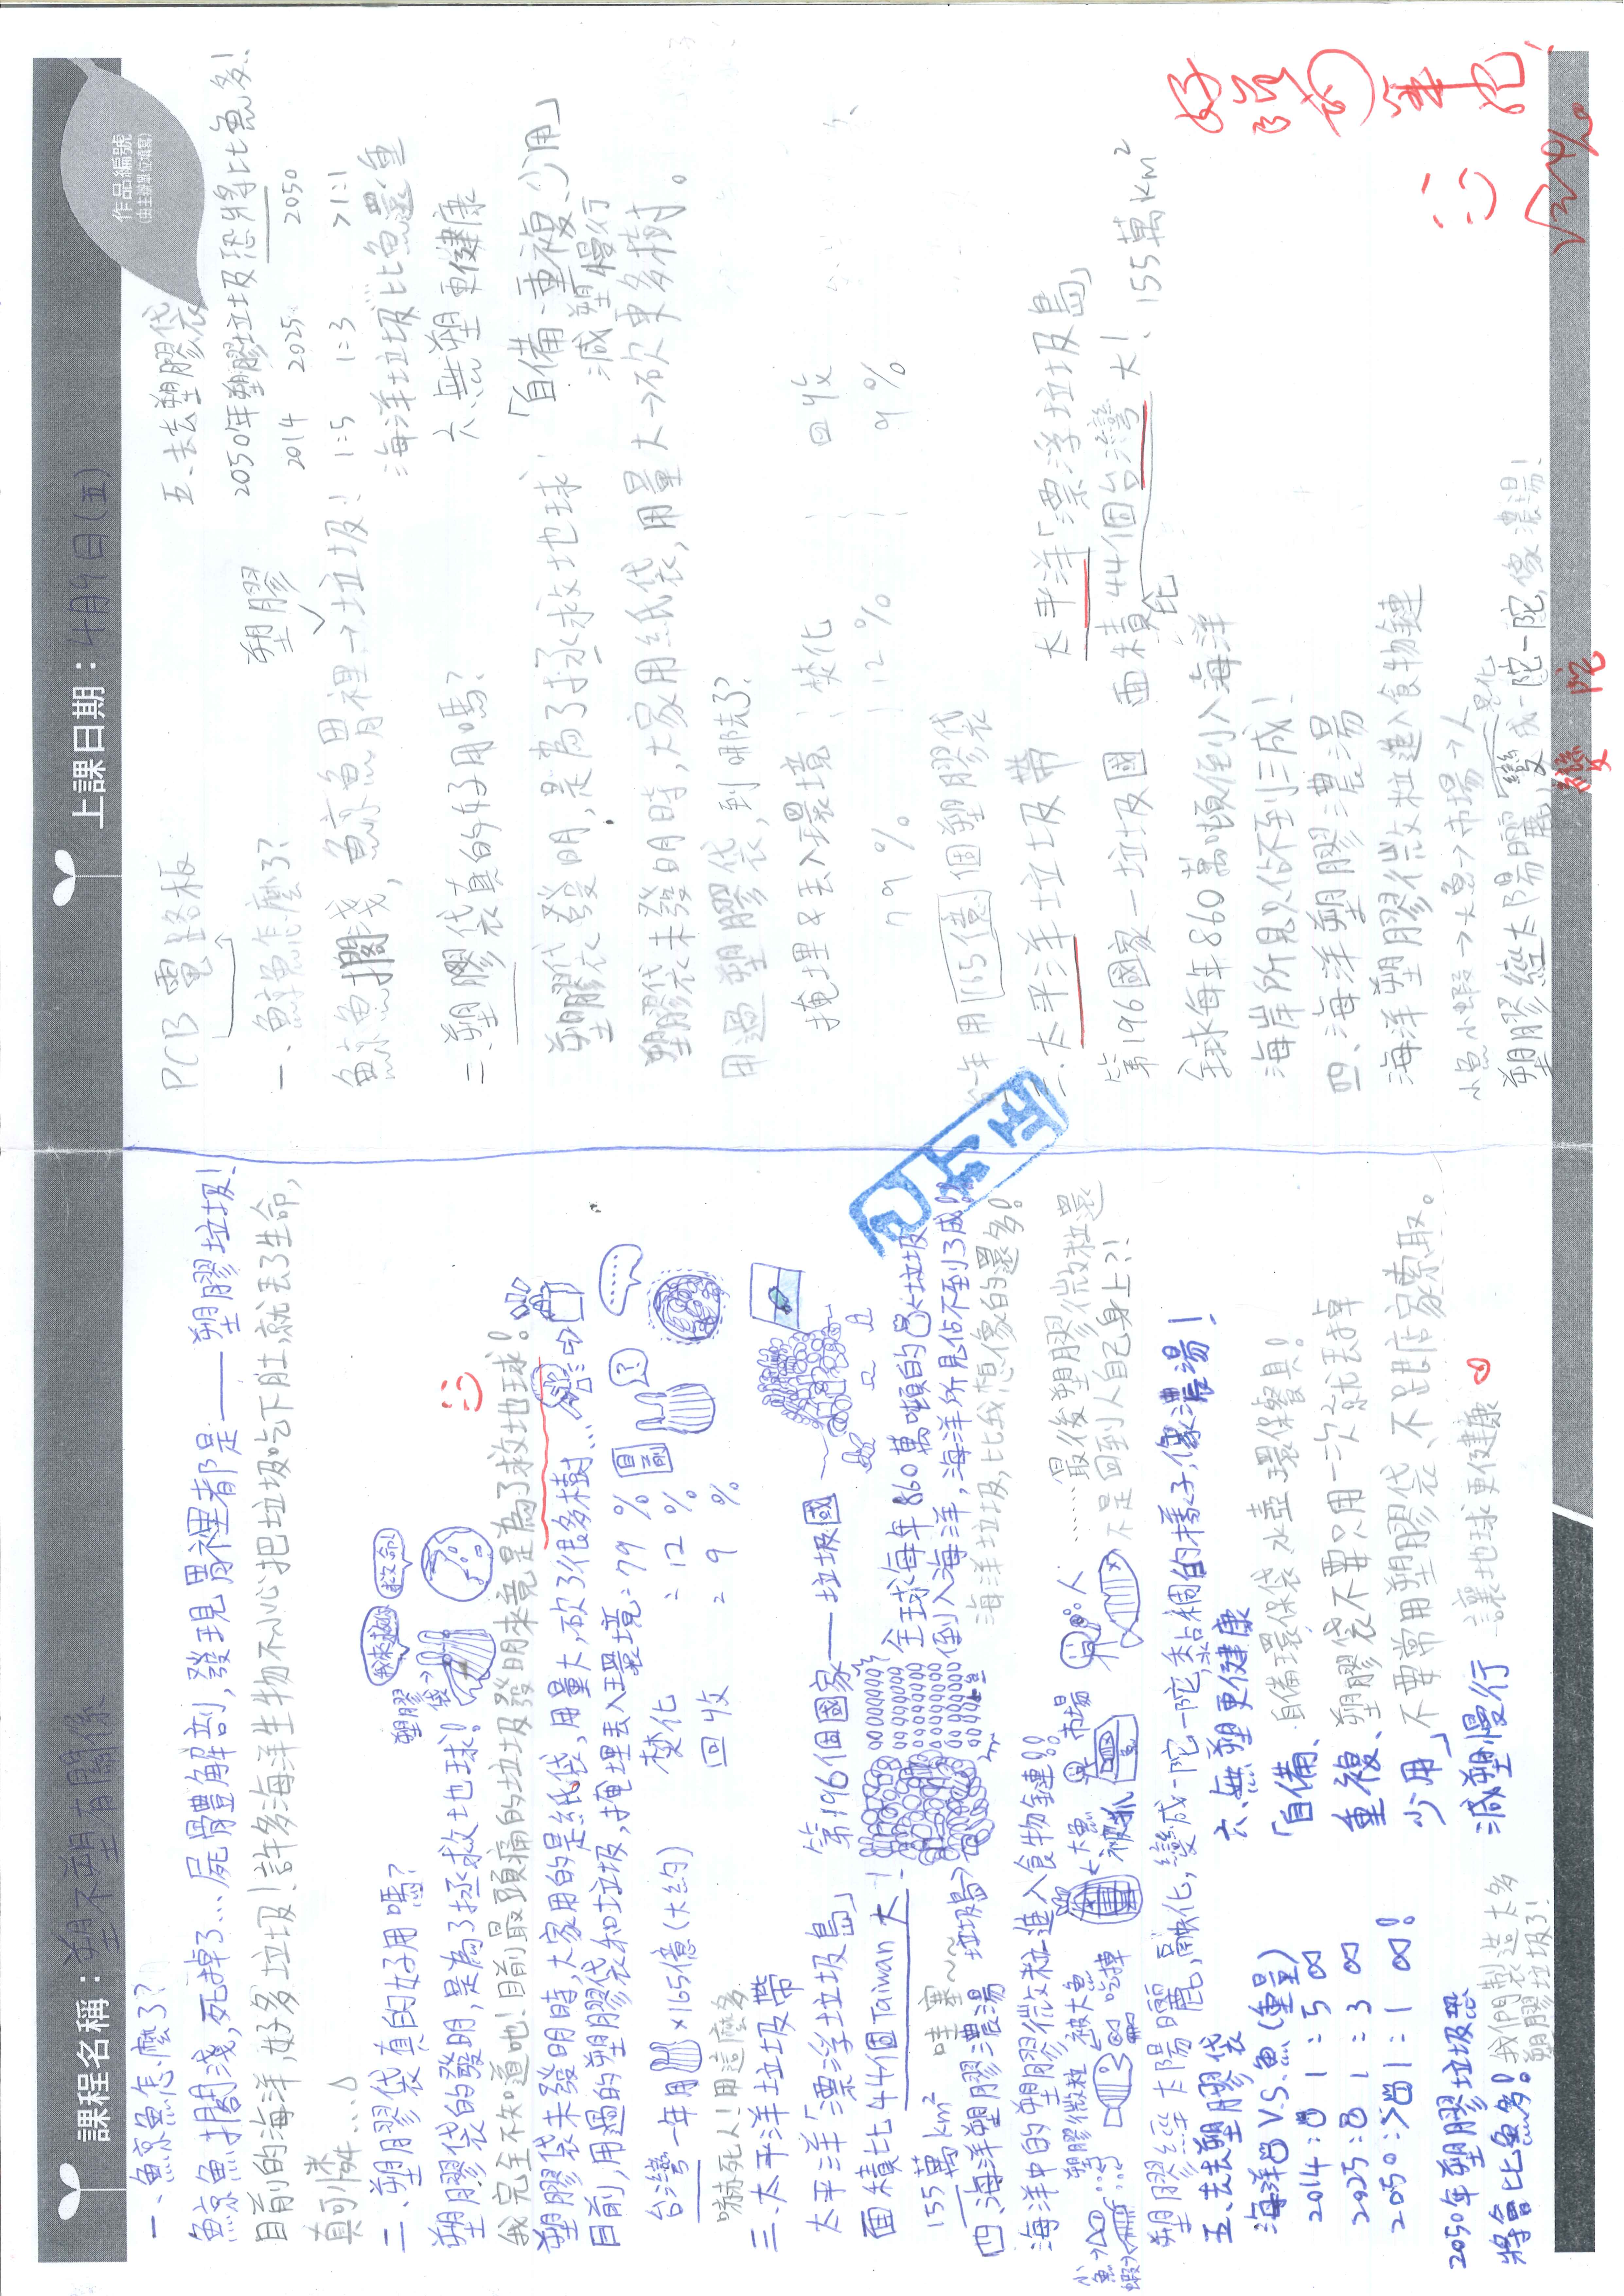 課程名稱：塑不塑有關係
一、鯨魚怎麼了?
鯨魚擱淺,死掉了...屍體解剖,發現胃裡都是——塑膠垃圾!
目前的海洋,好多垃圾!許多海洋生物不小心把垃圾吃下肚,就丟了生命,
真可憐...
二、塑膠袋真的好用嗎?
塑膠袋的發明,是為了拯救地球!
塑膠袋→
我來救你
救命!
我完全不知道吔!目前最頭痛的垃圾發明來竟是為了救地球!
塑膠袋未發明時,大家用的是紙袋,用量大,砍了很多樹...
目前,用過的塑膠袋和垃圾,掩埋丟入環境:79%
目前
焚化:12%
回收:9%
台灣一年用×165億(大約)
嚇死人!用這麼多
三、太平洋垃圾帶
第196個國家——垃圾國
太平洋「漂浮垃圾島」
面積比44個Taiwan大!
155萬km²
哇塞~~
垃圾島→
全球每年860萬噸的垃圾
倒入海洋,海洋所見佔不到3成!
海洋垃圾,比我想像的還多!
四、海洋塑膠濃湯
海洋中的塑膠微粒進入食物鏈!!
小魚→
蝦→
塑膠微粒
被大魚吃掉
大魚被抓
市場
人
......最後塑膠微粒還
不是回到人自己身上?!
塑膠經太陽曬,融化,變成一陀一陀黏稠的樣子,像濃湯!
五、去去塑膠袋
海洋V.S.魚(重量)
2014: 1:5
2025: 1:3
2050: >1:1
2050年塑膠垃圾恐
將會比魚多!
我們製造太多
塑膠垃圾了!
六、無塑更健康
「自備、
自備環保袋 水壺 環保餐具!
重複、
塑膠袋不要只用一次就丟掉
少用」
不要常用塑膠袋、不跟店家索取。
減塑慢行
讓地球更健康
上課日期：4月9日(五)
作品編號
(由主辦單位填寫)
PCB電路板
一、鯨魚怎麼了?
塑膠
鯨魚擱淺,鯨魚胃裡→垃圾!!
二、塑膠袋真的好用嗎?
塑膠袋發明,是為了拯救地球
塑膠袋未發明時,大家用紙袋,用量大→砍更多樹。
用過塑膠袋,到哪去了?
掩埋&丟入環境 焚化 回收
79% 12% 9%
年用165億個塑膠袋
三、太平洋垃圾帶
太平洋「漂浮垃圾島」
第196國家—垃圾國 面積比44個台灣大! 155萬km²
全球每年860萬噸倒入海洋
海岸所見佔不到三成!
四、海洋塑膠濃湯
海洋塑膠微粒進入食物鏈
小魚小蝦→大魚→市場→人
塑膠經太陽曬,變成一陀一陀,像濃湯!
變 陀
五、去去塑膠袋
2050年塑膠垃圾恐將比魚多!
2014 2025 2050
1:5 1:3 >1:1
海洋垃圾比魚還重
六、無塑更健康
「自備、重複、少用」
減塑慢行
好認的筆記!